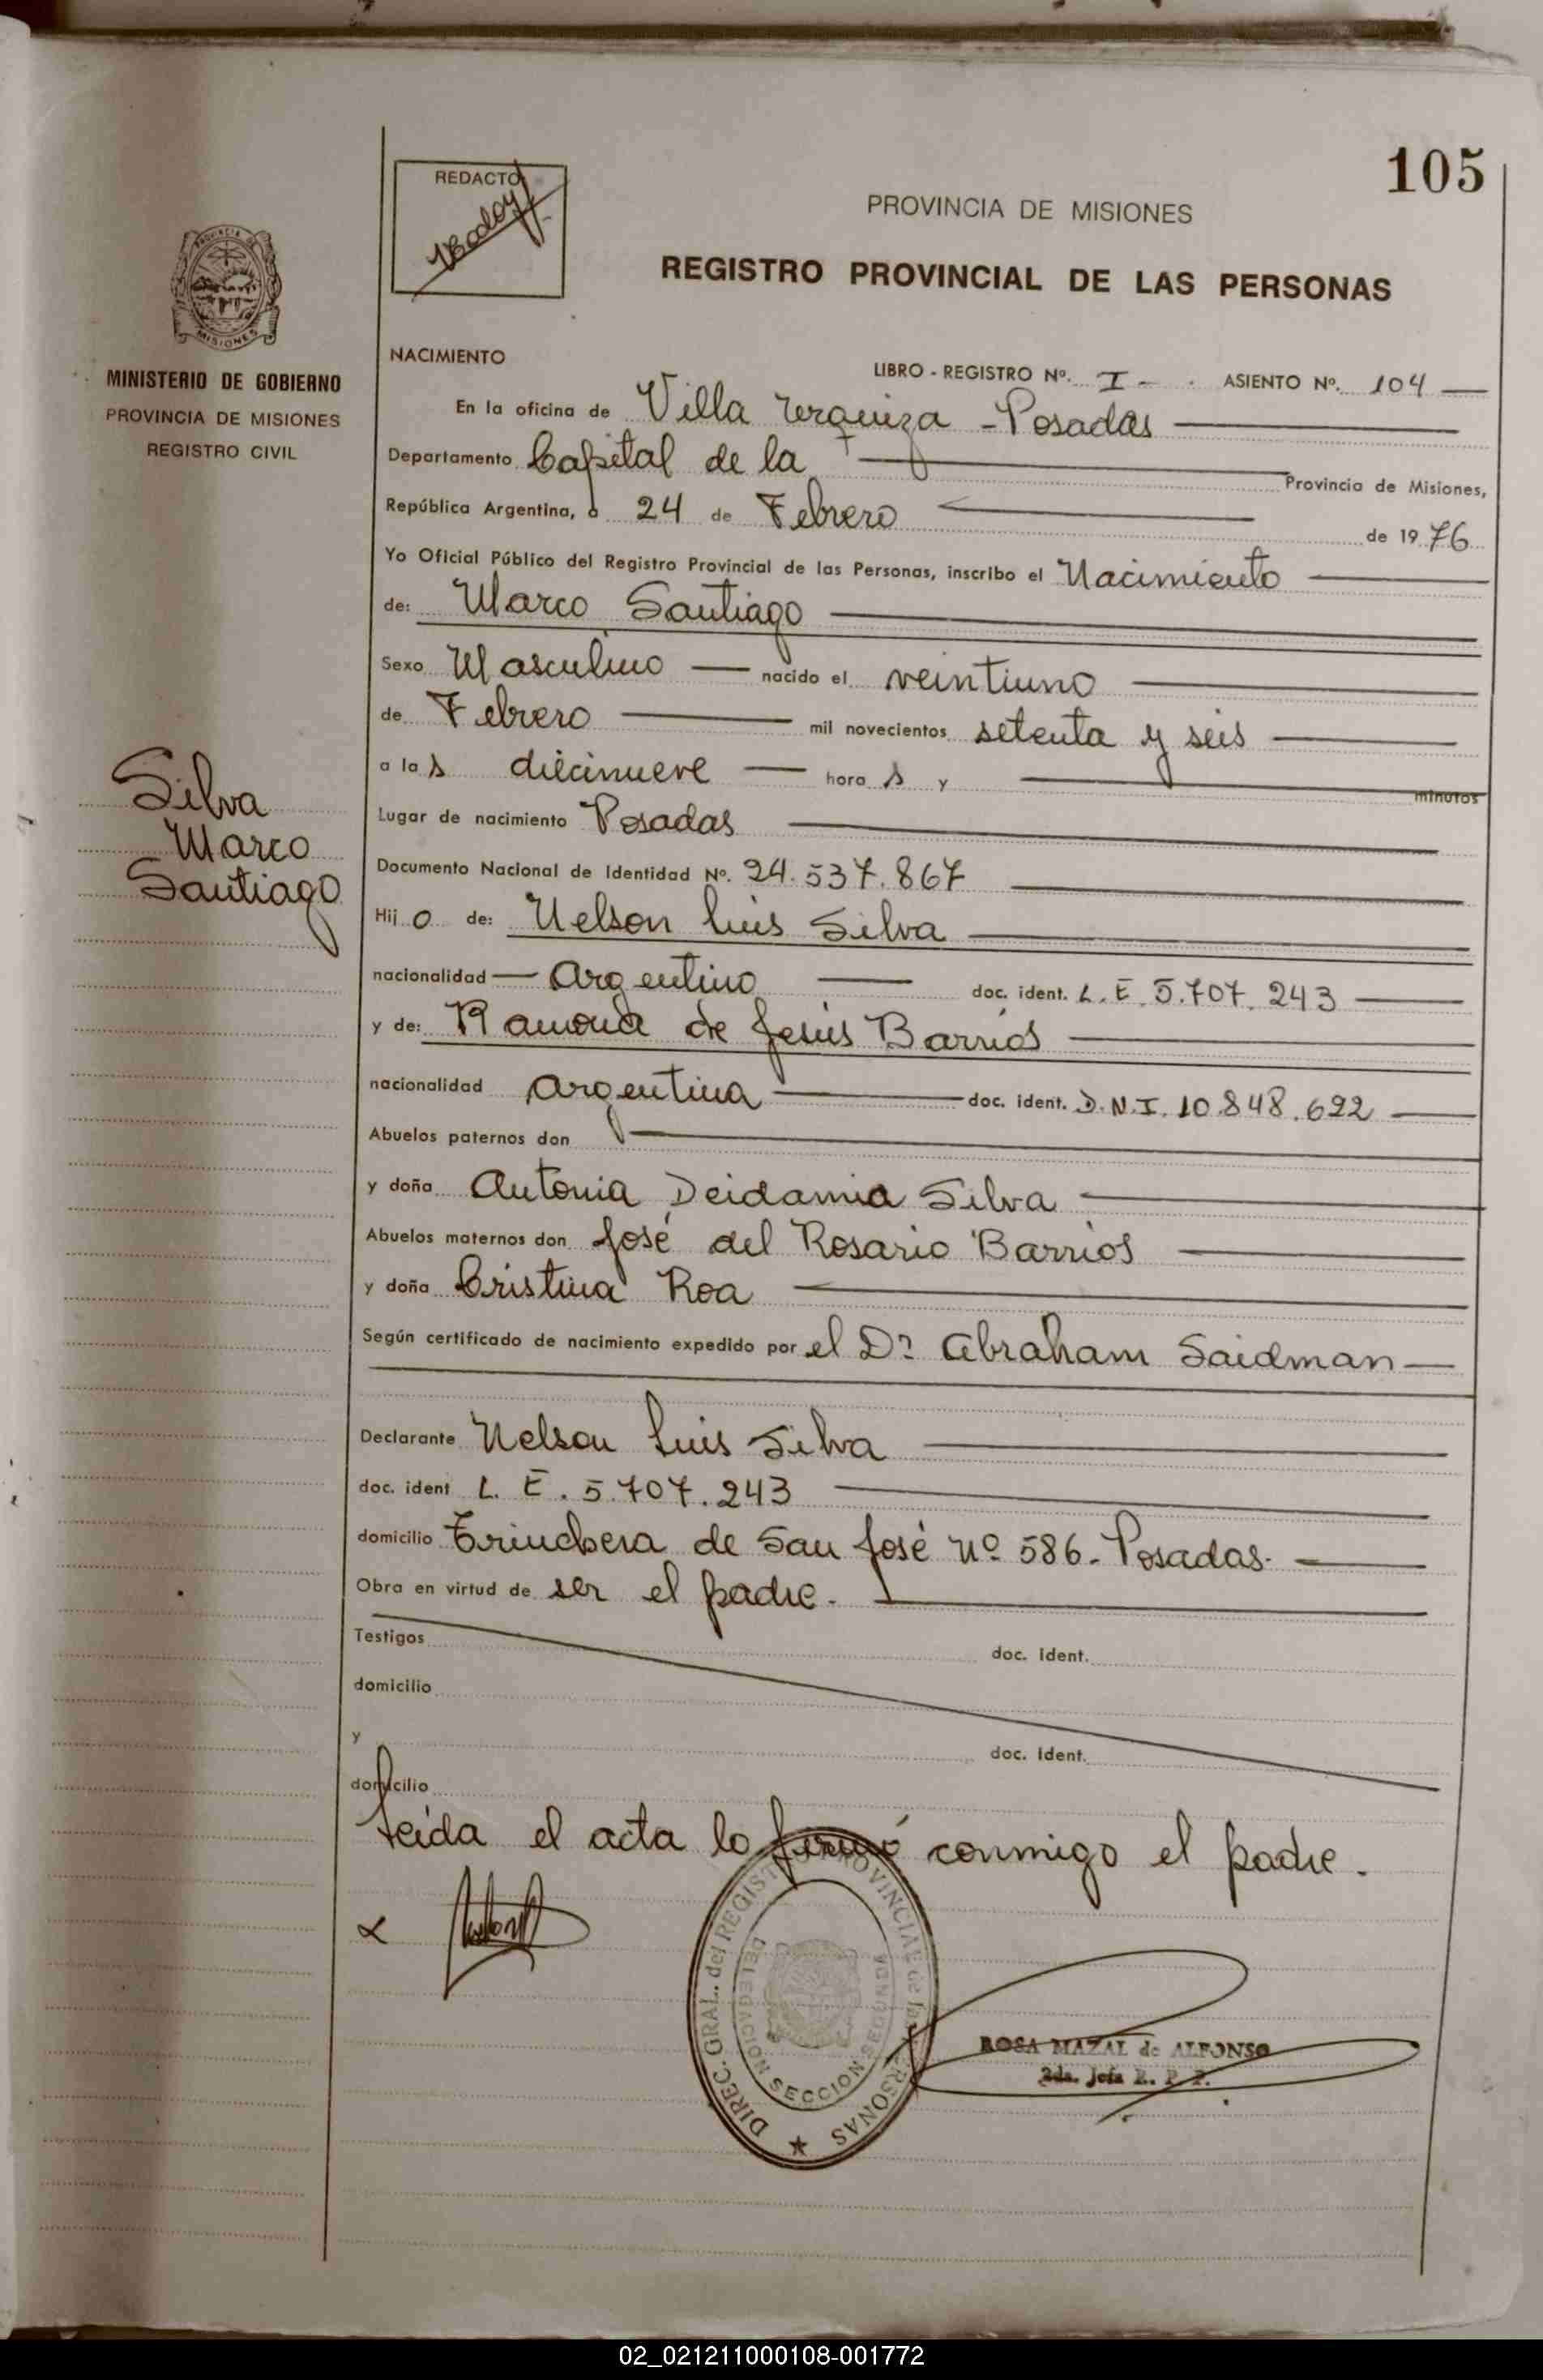 105
REDACTO
PROVINCIA DE MISIONES
REGISTRO PROVINCIAL DE LAS PERSONAS
MISIONES
MINISTERIO DE GOBIERNO
PROVINCIA DE MISIONES
REGISTRO CIVIL
NACIMIENTO
LIBRO - REGISTRO Nº. I - ASIENTO Nº. 104
En la oficina de Villa Urquiza - Posadas
Departamento Capital de la Provincia de Misiones,
República Argentina, a 24 de Febrero de 1976
Yo Oficial Público del Registro Provincial de las Personas, inscribo el Nacimiento
de: Marco Santiago
Sexo Masculino nacido el veintiuno
de Febrero mil novecientos setenta y seis
a las diecinueve horas y minutos
Silva
Marco
Santiago
Lugar de nacimiento Posadas
Documento Nacional de Identidad Nº. 24.537.867
Hijo de: Nelson Luis Silva
nacionalidad Argentino doc. ident. L. E. 5.707.243
y de: Ramona de Jesús Barrios
nacionalidad Argentina doc. ident. D.N.I. 10.848.622
Abuelos paternos don
y doña Antonia Deidamia Silva
Abuelos maternos don José del Rosario Barrios
y doña Cristina Roa
Según certificado de nacimiento expedido por el Dr Abraham Saidman
Declarante Nelson Luis Silva
doc. ident L. E. 5.707.243
domicilio Trinchera de San José Nº 586 - Posadas.
Obra en virtud de ser el padre.
Testigos doc. ident.
domicilio
y doc. ident.
domicilio
Leida el acta lo firmó conmigo el padre.
DIREC. GRAL. del REGISTRO PROVINCIAL de las PERSONAS
DELEGACION SECCION SEGUNDA
ROSA MAZAL de ALFONSO
2da. Jefa R. P. P.
02_021211000108-001772